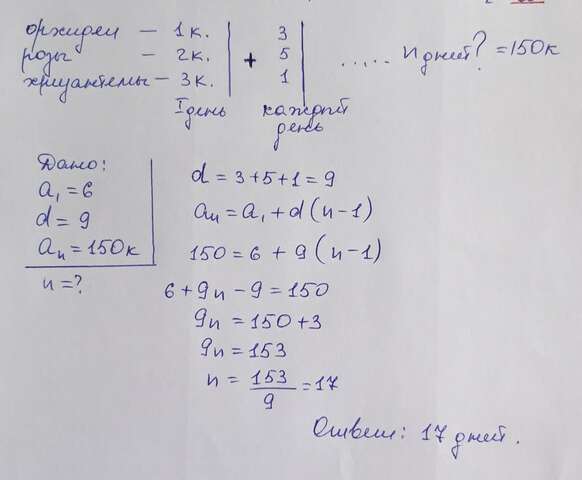 орхидеи — 1к. 3
розы — 2к. + 5 ..... n дней? = 150к
хризантемы — 3к. 1
I день каждый день
Дано:
a₁ = 6
d = 9
aₙ = 150к
n = ?
d = 3+5+1 = 9
aₙ = a₁ + d(n-1)
150 = 6 + 9(n-1)
6 + 9n - 9 = 150
9n = 150 + 3
9n = 153
n = 153/9 = 17
Ответ: 17 дней.